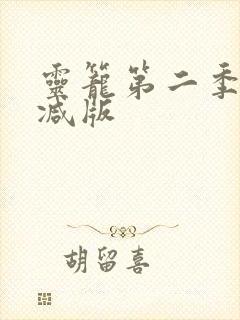 靈籠第二季
减版
胡留喜